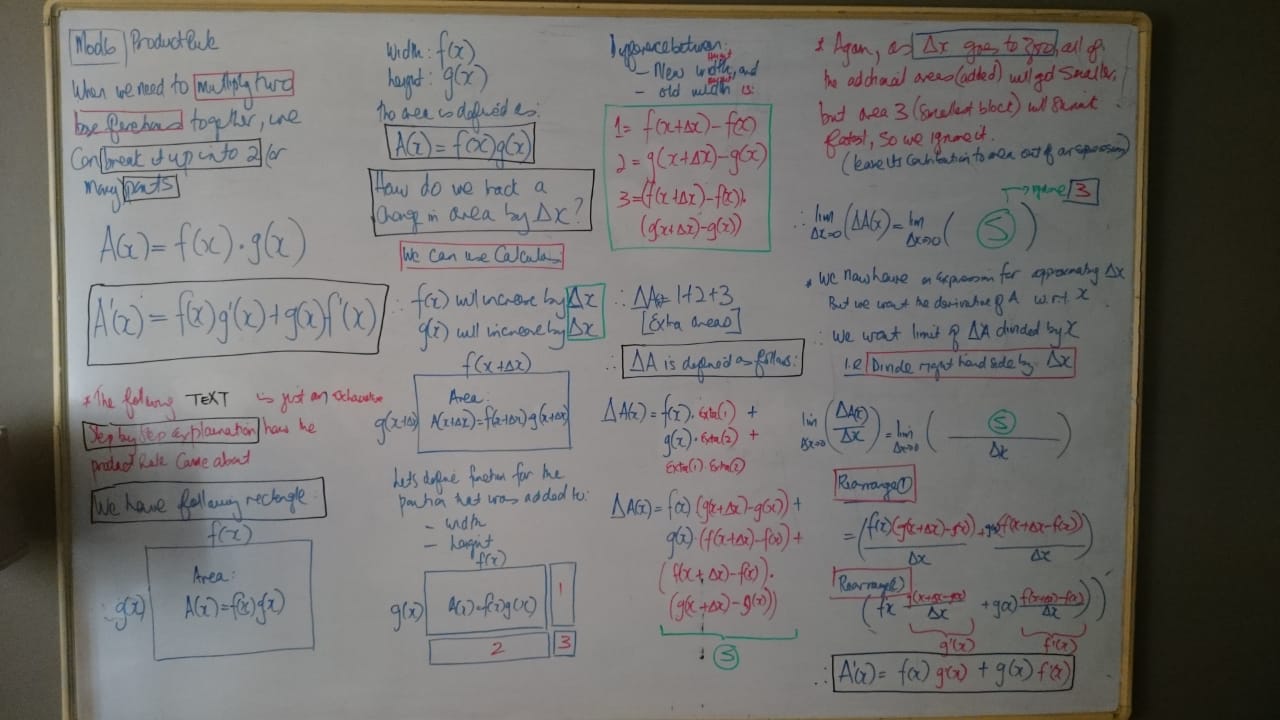 Mod6 Product Rule
When we need to multiply two
base functions together, we
Can break it up into 2 (or
many) parts
A(x) = f(x) · g(x)
A'(x) = f(x)g'(x) + g(x)f'(x)
* The following TEXT is just an exhaustive
Step by Step explaination how the
product Rule Came about
We have following rectangle:
f(x)
g(x)
Area:
A(x) = f(x)g(x)
Width: f(x)
height: g(x)
The area is defined as:
A(x) = f(x)g(x)
How do we track a
change in area by Δx?
We can use Calculus
∴ f(x) will increase by Δx
g(x) will increase by Δx
f(x+Δx)
g(x+Δx)
Area:
A(x+Δx)=f(x+Δx)g(x+Δx)
Lets define function for the
portion that was added to:
- width
- height
f(x)
g(x)
A(x)=f(x)g(x)
1
2
3
Difference between:
- New width, and
- old width is:
1= f(x+Δx)-f(x)
2= g(x+Δx)-g(x)
3=(f(x+Δx)-f(x)).
(g(x+Δx)-g(x))
∴ ΔA = 1+2+3
[Extra areas]
∴ ΔA is defined as follows:
ΔA(x) = f(x). Extra(1) +
g(x). Extra(2) +
Extra(1). Extra(2)
ΔA(x) = f(x) (g(x+Δx)-g(x)) +
g(x).(f(x+Δx)-f(x)) +
(f(x+Δx)-f(x)).
(g(x+Δx)-g(x))
S
* Again, as Δx goes to zero, all of
the additional areas (added) will get smaller,
but area 3 (smallest block) will shrink
fastest, So we ignore it.
(leave its contribution to area out of an expression)
→ ignore 3
∴ lim Δx→0 (ΔA(x) = lim Δx→0 ( S )
* We now have an expression for approximating Δx
But we want the derivative of A w.r.t. x
∴ We want limit of ΔA divided by X
i.e Divide right hand side by Δx
lim Δx→0 (ΔA(x)/Δx) = lim Δx→0 ( S / Δx )
Rearrange(1)
= (f(x)(g(x+Δx)-g(x))/Δx + g(x)(f(x+Δx-f(x))/Δx)
Rearrange(2)
g'(x) f'(x)
∴ A'(x) = f(x) g'(x) + g(x) f'(x)